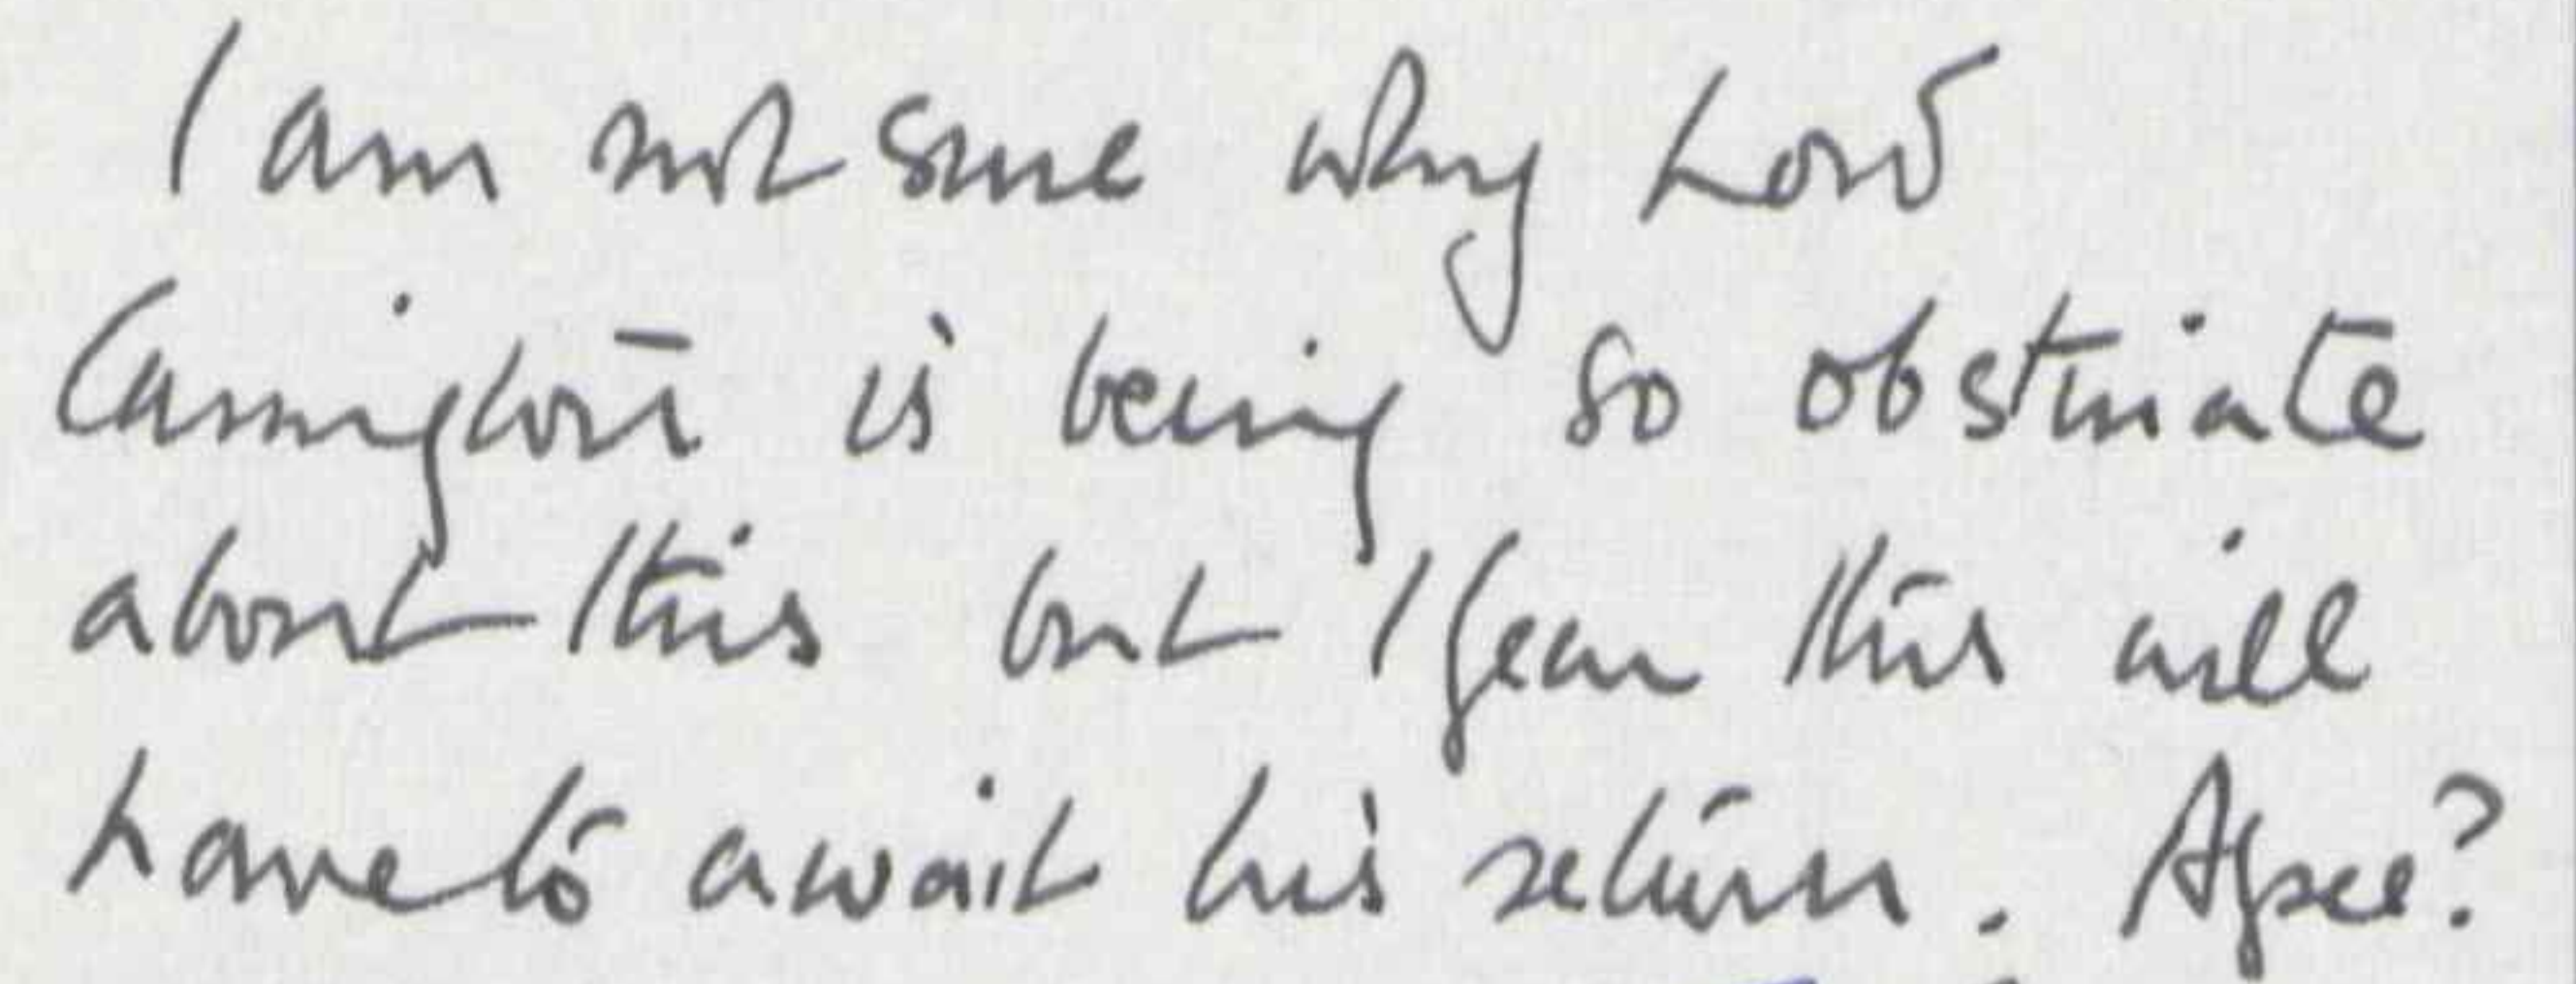 I am not sure why Lord
Carrington is being so obstinate
about this but I fear this will
have to await his return. Agree?